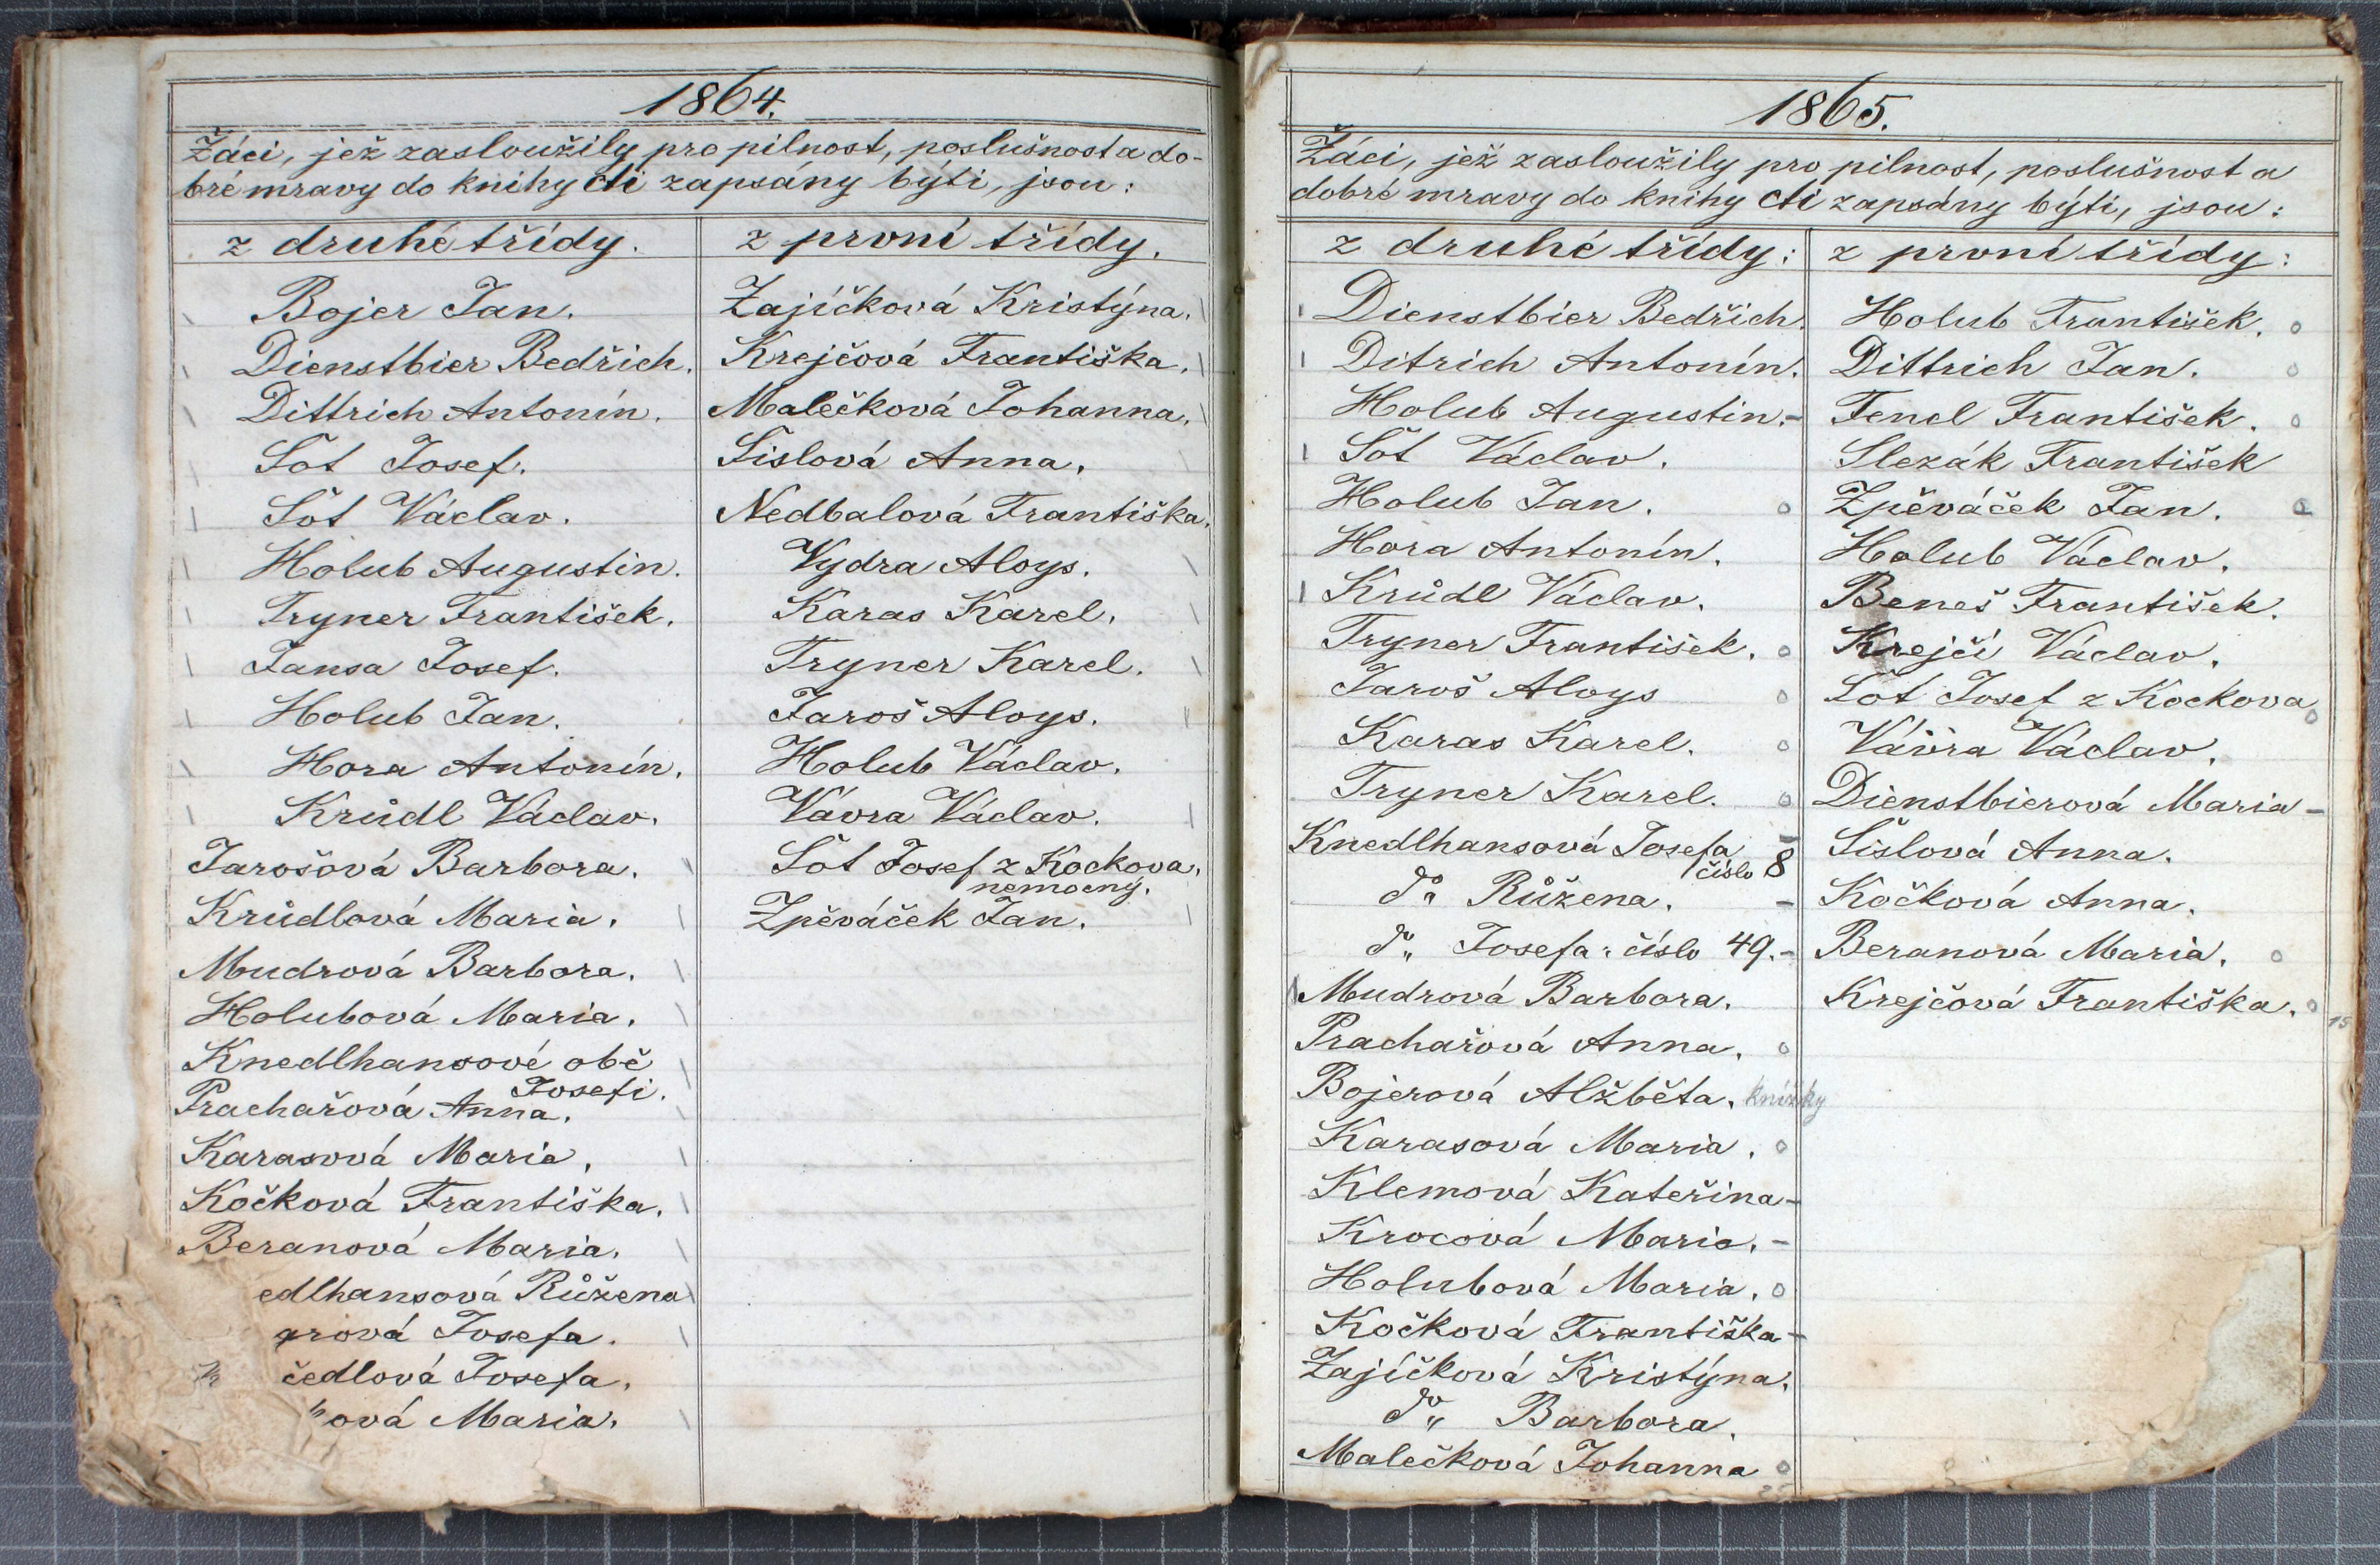 1864.
Žáci, jež zasloužily pro pilnost, poslušnost a do-
bré mravy do knihy cti zapsány býti, jsou:
z druhé třídy.
Bojer Jan.
Dienstbier Bedřich.
Dittrich Antonín.
Šot Josef.
Šot Václav.
Holub Augustin.
Tryner František.
Jansa Josef.
Holub Jan.
Hora Antonín.
Krůdl Václav.
Jarošová Barbora.
Krůdlová Maria.
Mudrová Barbora.
Holubová Maria.
Knedlhansové obě
Josefi.
Prachařová Anna.
Karasová Maria,
Kočková Františka.
Beranová Maria.
edlhansová Růžena
grová Josefa.
čedlová Josefa.
ová Maria.
z první třídy.
Zajíčková Kristýna.
Krejčová Františka.
Malečková Johanna.
Šislová Anna.
Nedbalová Františka.
Vydra Aloys.
Karas Karel.
Tryner Karel.
Jaroš Aloys.
Holub Václav.
Vávra Václav.
Šot Josef z Kockova.
nemocný.
Zpěváček Jan.
1865.
Žáci, jež zasloužily pro pilnost, poslušnost a
dobré mravy do knihy cti zapsány býti, jsou:
z druhé třídy:
Dienstbier Bedřich.
Ditrich Antonín.
Holub Augustin.-
Šot Václav.
Holub Jan.
Hora Antonín.
Krůdl Václav.
Tryner František.
Jaroš Aloys
Karas Karel.
Tryner Karel.
Knedlhansová Josefa
číslo 8
do Růžena. -
do Josefa: číslo 49.-
Mudrová Barbora.
Prachařová Anna.
Bojerová Alžběta. knížky
Karasová Maria.
Klemová Kateřina-
Krocová Maria.-
Holubová Maria.
Kočková Františka-
Zajíčková Kristýna.
do Barbora.
Malečková Johanna
z první třídy:
Holub František.
Dittrich Jan.
Fencl František.
Slezák František
Zpěváček Jan.
Holub Václav.
Beneš František.
Krejčí Václav.
Šot Josef z Kockova
Vávra Václav.
Dienstbierová Maria-
Šislová Anna.
Kočková Anna.
Beranová Maria.
Krejčová Františka.
15